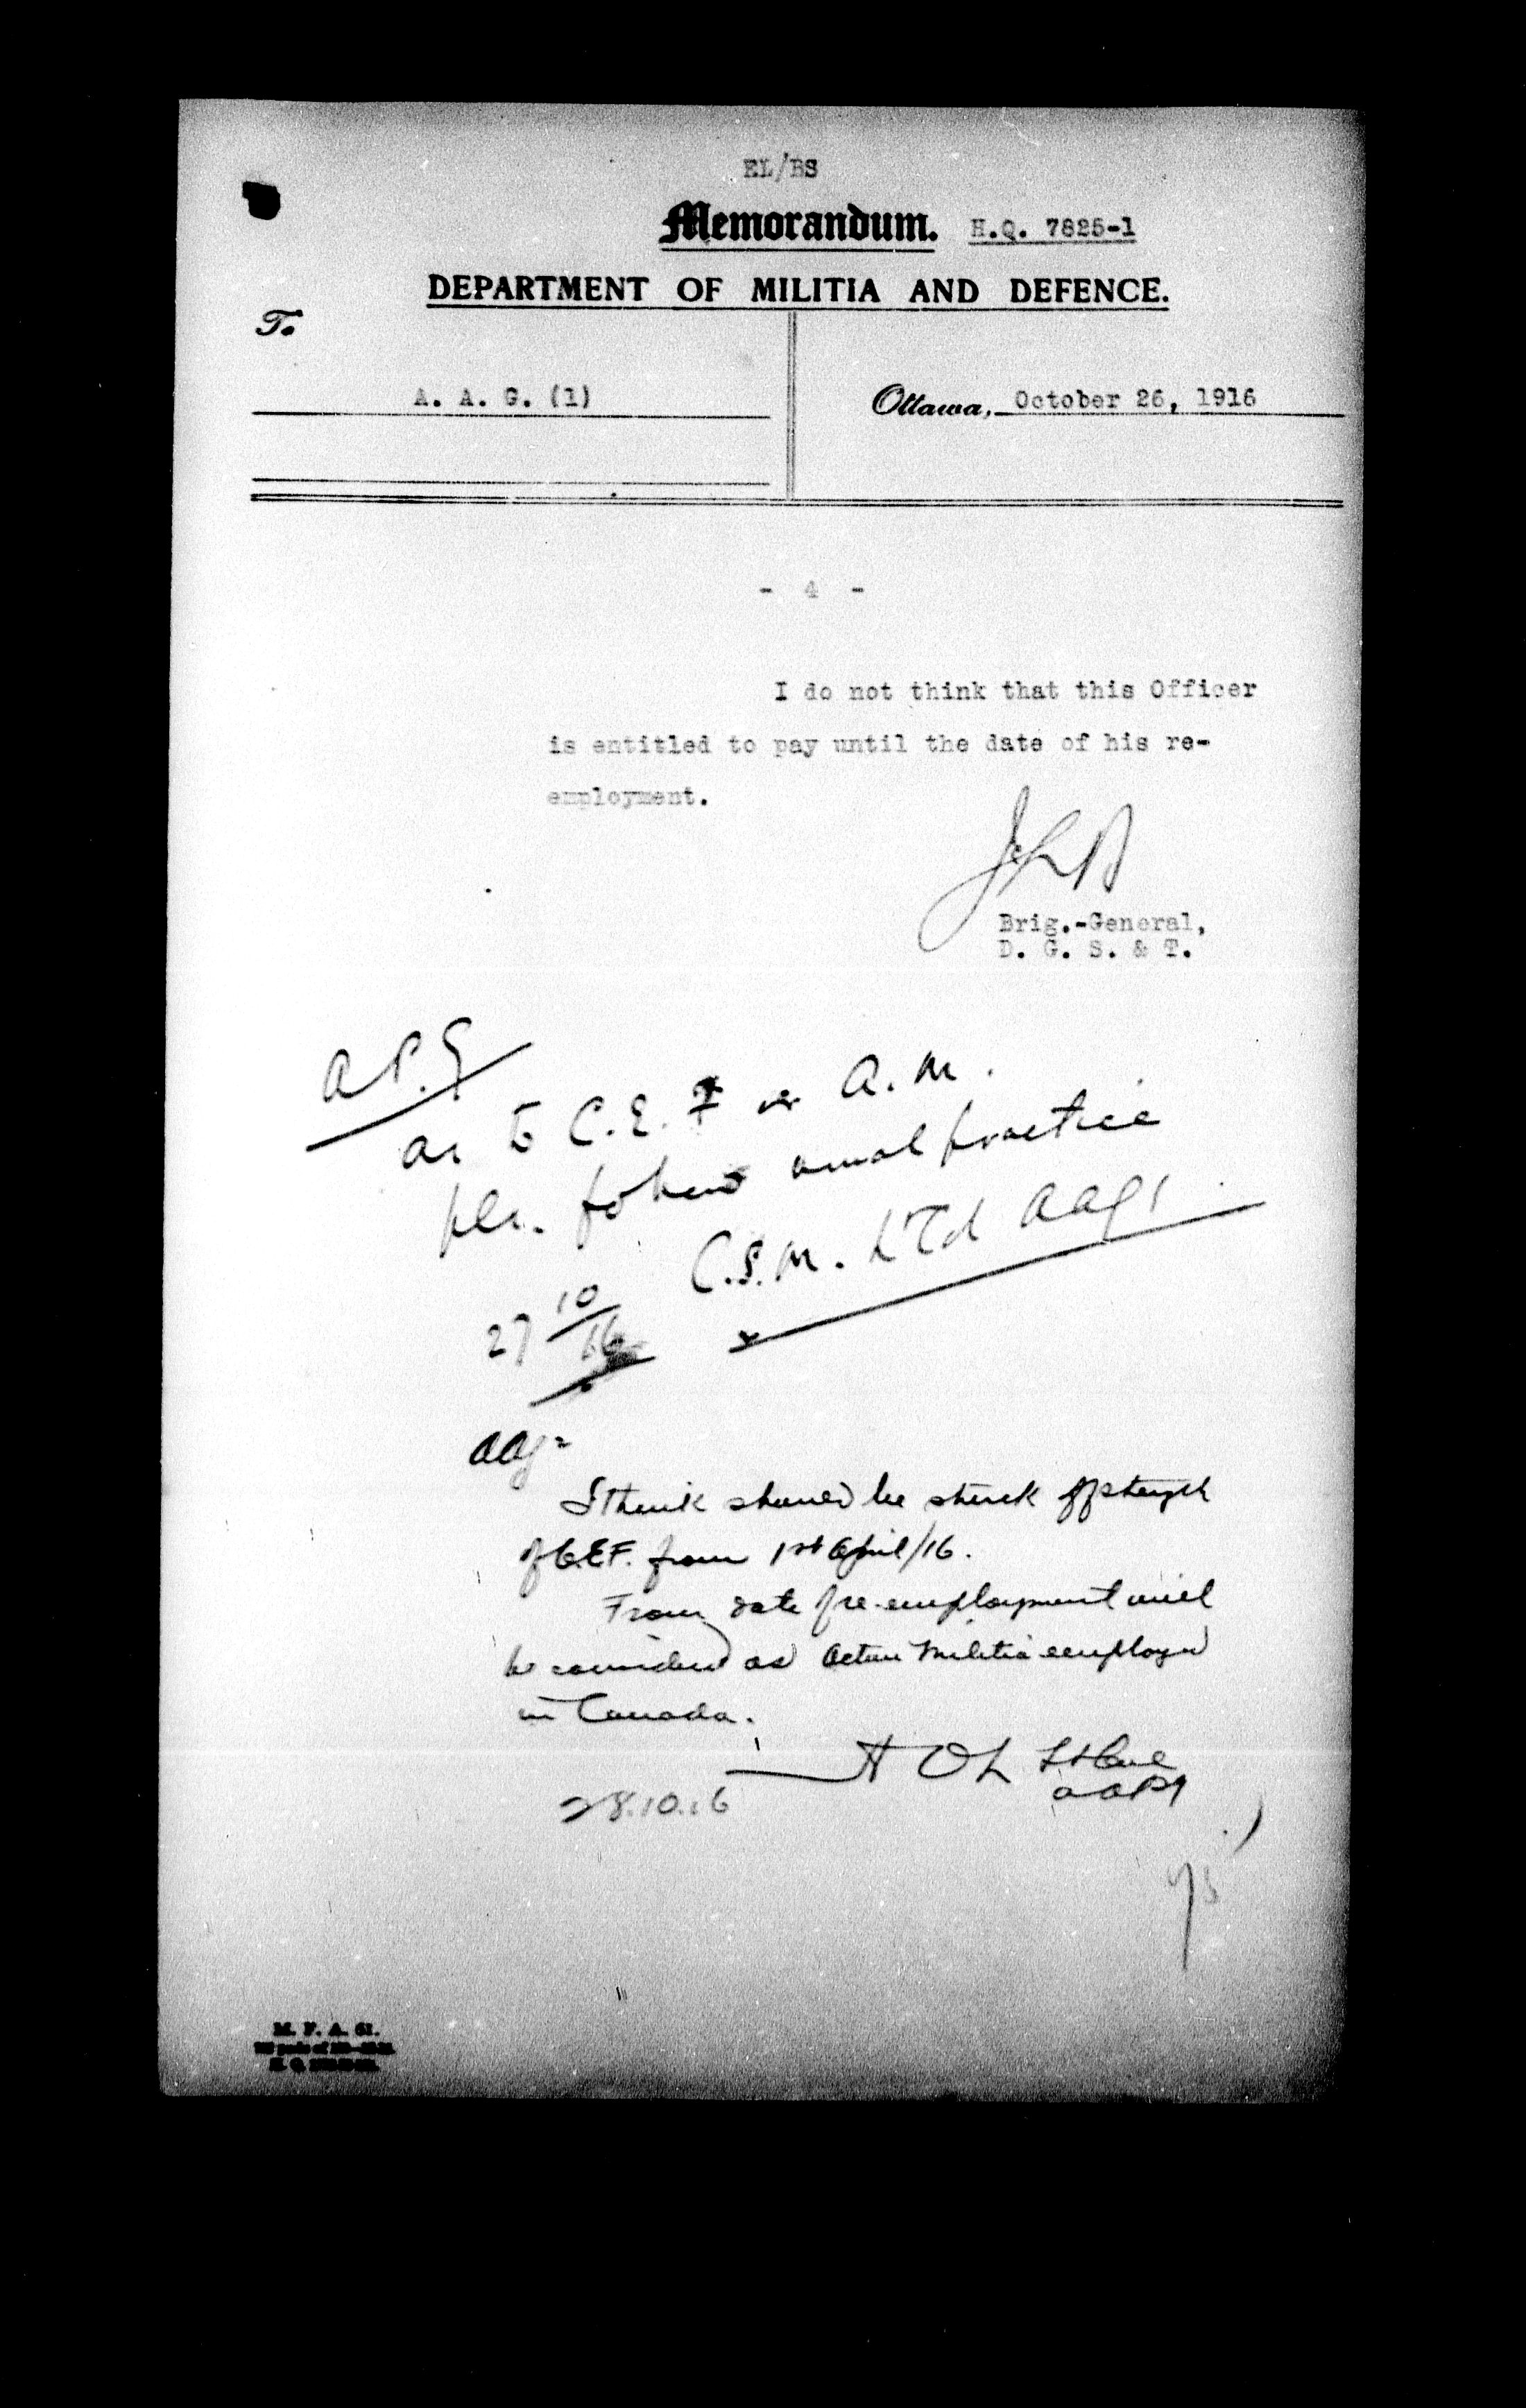 EL/BS
Memorandum. H.Q. 7825-1
DEPARTMENT OF MILITIA AND DEFENCE.
To
A. A. G. (1)
Ottawa, October 26, 1916
- 4 -
I do not think that this Officer
is entitled to pay until the date of his re-
employment.
Brig.-General,
D. G. S. & T.
A.P.G
as to C.E.F or A.M.
pls. follow usual practice
C.S.M. Lt Col AAG1
27 10/16
AAG
I think should be struck off strength
of C.E.F. from 1st April/16.
From date of re-employment will
be considered as Active Militia employed
in Canada.
Lt Col
AAPG
28.10.16
M. F. A. 61.